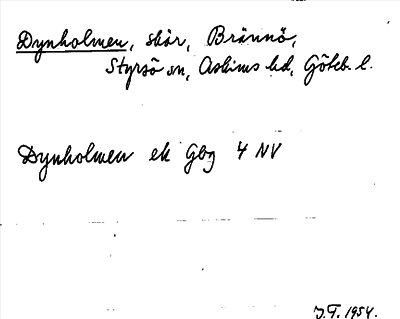 Dynholmen, skär, Brännö,
Styrsö sn, Askims hd, Göteb. l.
Dynholmen ek Gbg 4 NV
J.T. 1954.